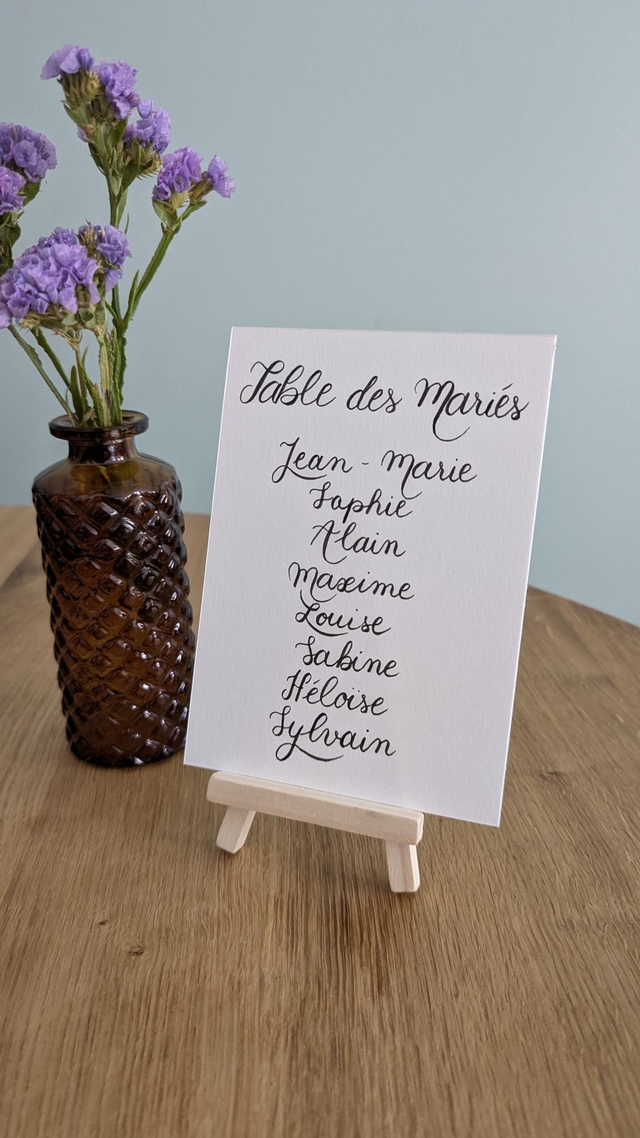 Table des Mariés
Jean - Marie
Sophie
Alain
Maxime
Louise
Sabine
Héloïse
Sylvain